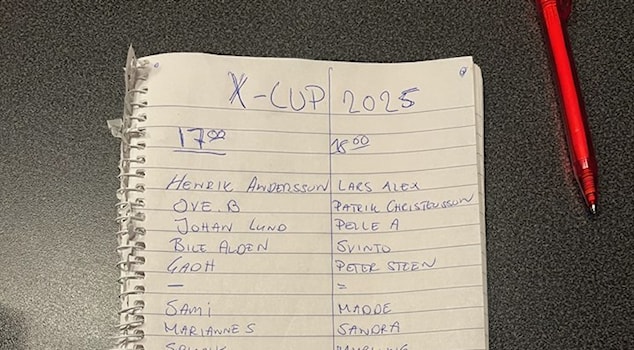 X-CUP 2025
17⁰⁰ 18⁰⁰
HENRIK ANDERSSON LARS ALEX
OVE.B PATRIK CHRISTENSSON
JOHAN LUND PELLE A
BILL ALDEN SVINTO
GADH PETER STEEN
— =
SAMI MADDE
MARIANNE S SANDRA